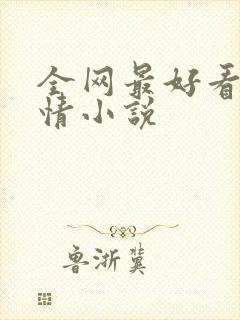 全网最好看
情小说
鲁浙冀